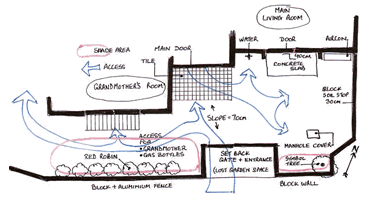 MAIN
LIVING ROOM
SHADE AREA
ACCESS
MAIN DOOR
TILE
WATER
DOOR
AIRCON.
90CM
CONCRETE
SLAB
GRANDMOTHER'S ROOM
BLOCK
SOIL STOP
30CM
SLOPE = 70CM
ACCESS
FOR
• GRANDMOTHER
• GAS BOTTLES
RED ROBIN
SET BACK
GATE + ENTRANCE
(LOST GARDEN SPACE
MANHOLE COVER
SYMBOL
TREE
BLOCK + ALUMINIUM FENCE
BLOCK WALL
N